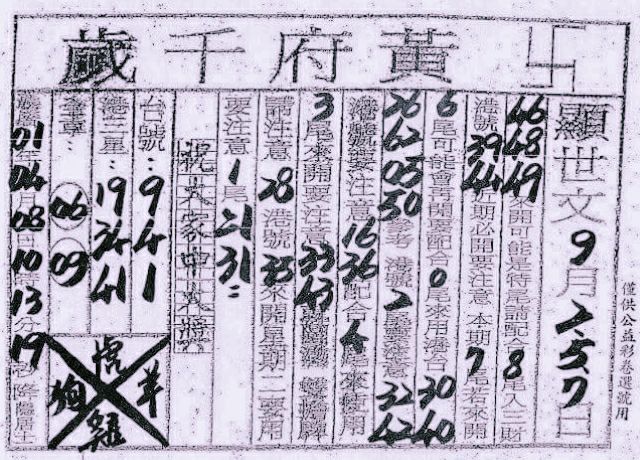 卐黃府千歲
僅供公益彩卷選號用
顯世文9月2.5.7日
46 48 49 開可能是特尾請配合8尾入三財
港號 39 44 近期必開要注意 本期7尾若來開
6尾可能會再開要配合0尾來用港台 30 40
26 62 05 50 參考 港號2尾號要注意 32 42
港號要注意 16 36 配合4尾來使用
3尾來開要注意 33 43
請注意 28 港號 35 來開星期二要用
要注意 1尾 21 31
祝大家中大獎
台號：9 4 1
港三星：19 34 41
全車：06 09
01年04月08日10時13分19秒降臨居士
虎
羊
狗
雞